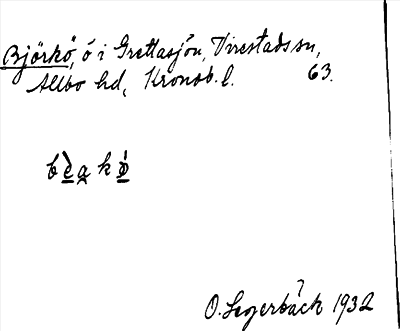 Björkö, ö i Grettasjön, Virestads sn,
Allbo hd, Kronob. l. 63.
O. Segerbäck 1932